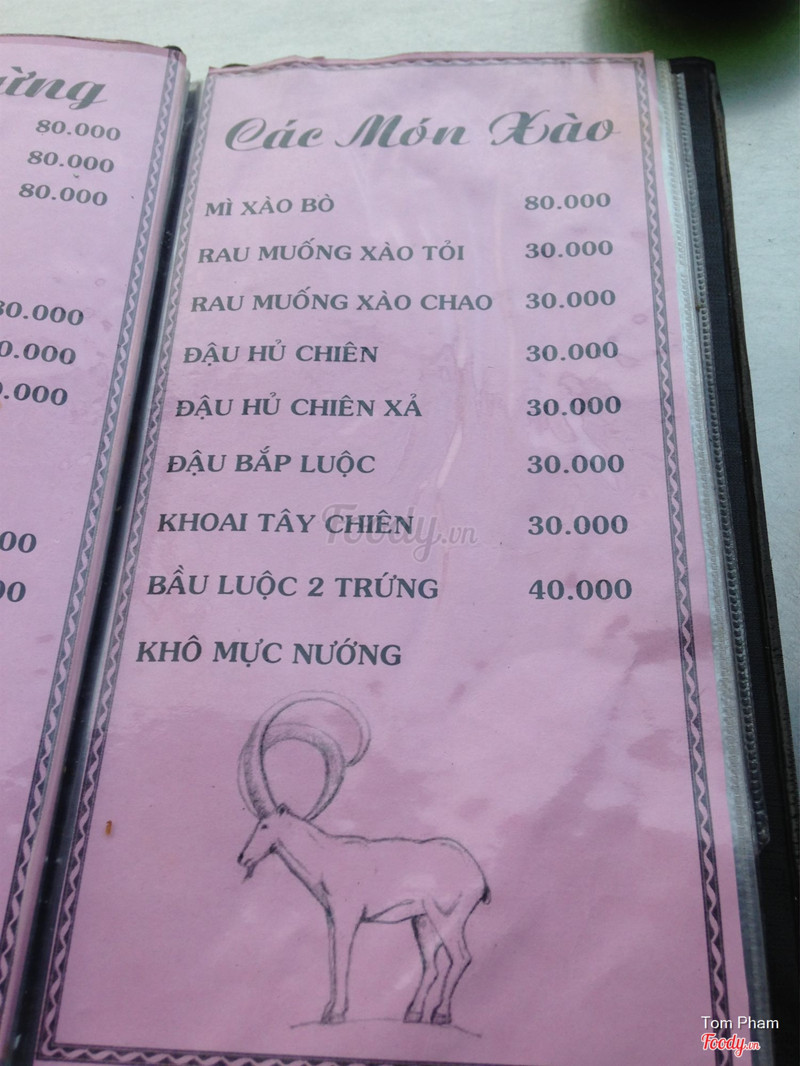 80.000
80.000
80.000
00
00
Các Món Xào
MÌ XÀO BÒ 80.000
RAU MUỐNG XÀO TỎI 30.000
RAU MUỐNG XÀO CHAO 30.000
ĐẬU HỦ CHIÊN 30.000
ĐẬU HỦ CHIÊN XẢ 30.000
ĐẬU BẮP LUỘC 30.000
KHOAI TÂY CHIÊN 30.000
BẦU LUỘC 2 TRỨNG 40.000
KHÔ MỰC NƯỚNG
Foody.vn
Tom Pham
Foody.vn